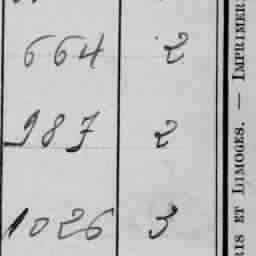 664 2
987 2
1026 3
RIS ET LIMOGES. — IMPRIMERI